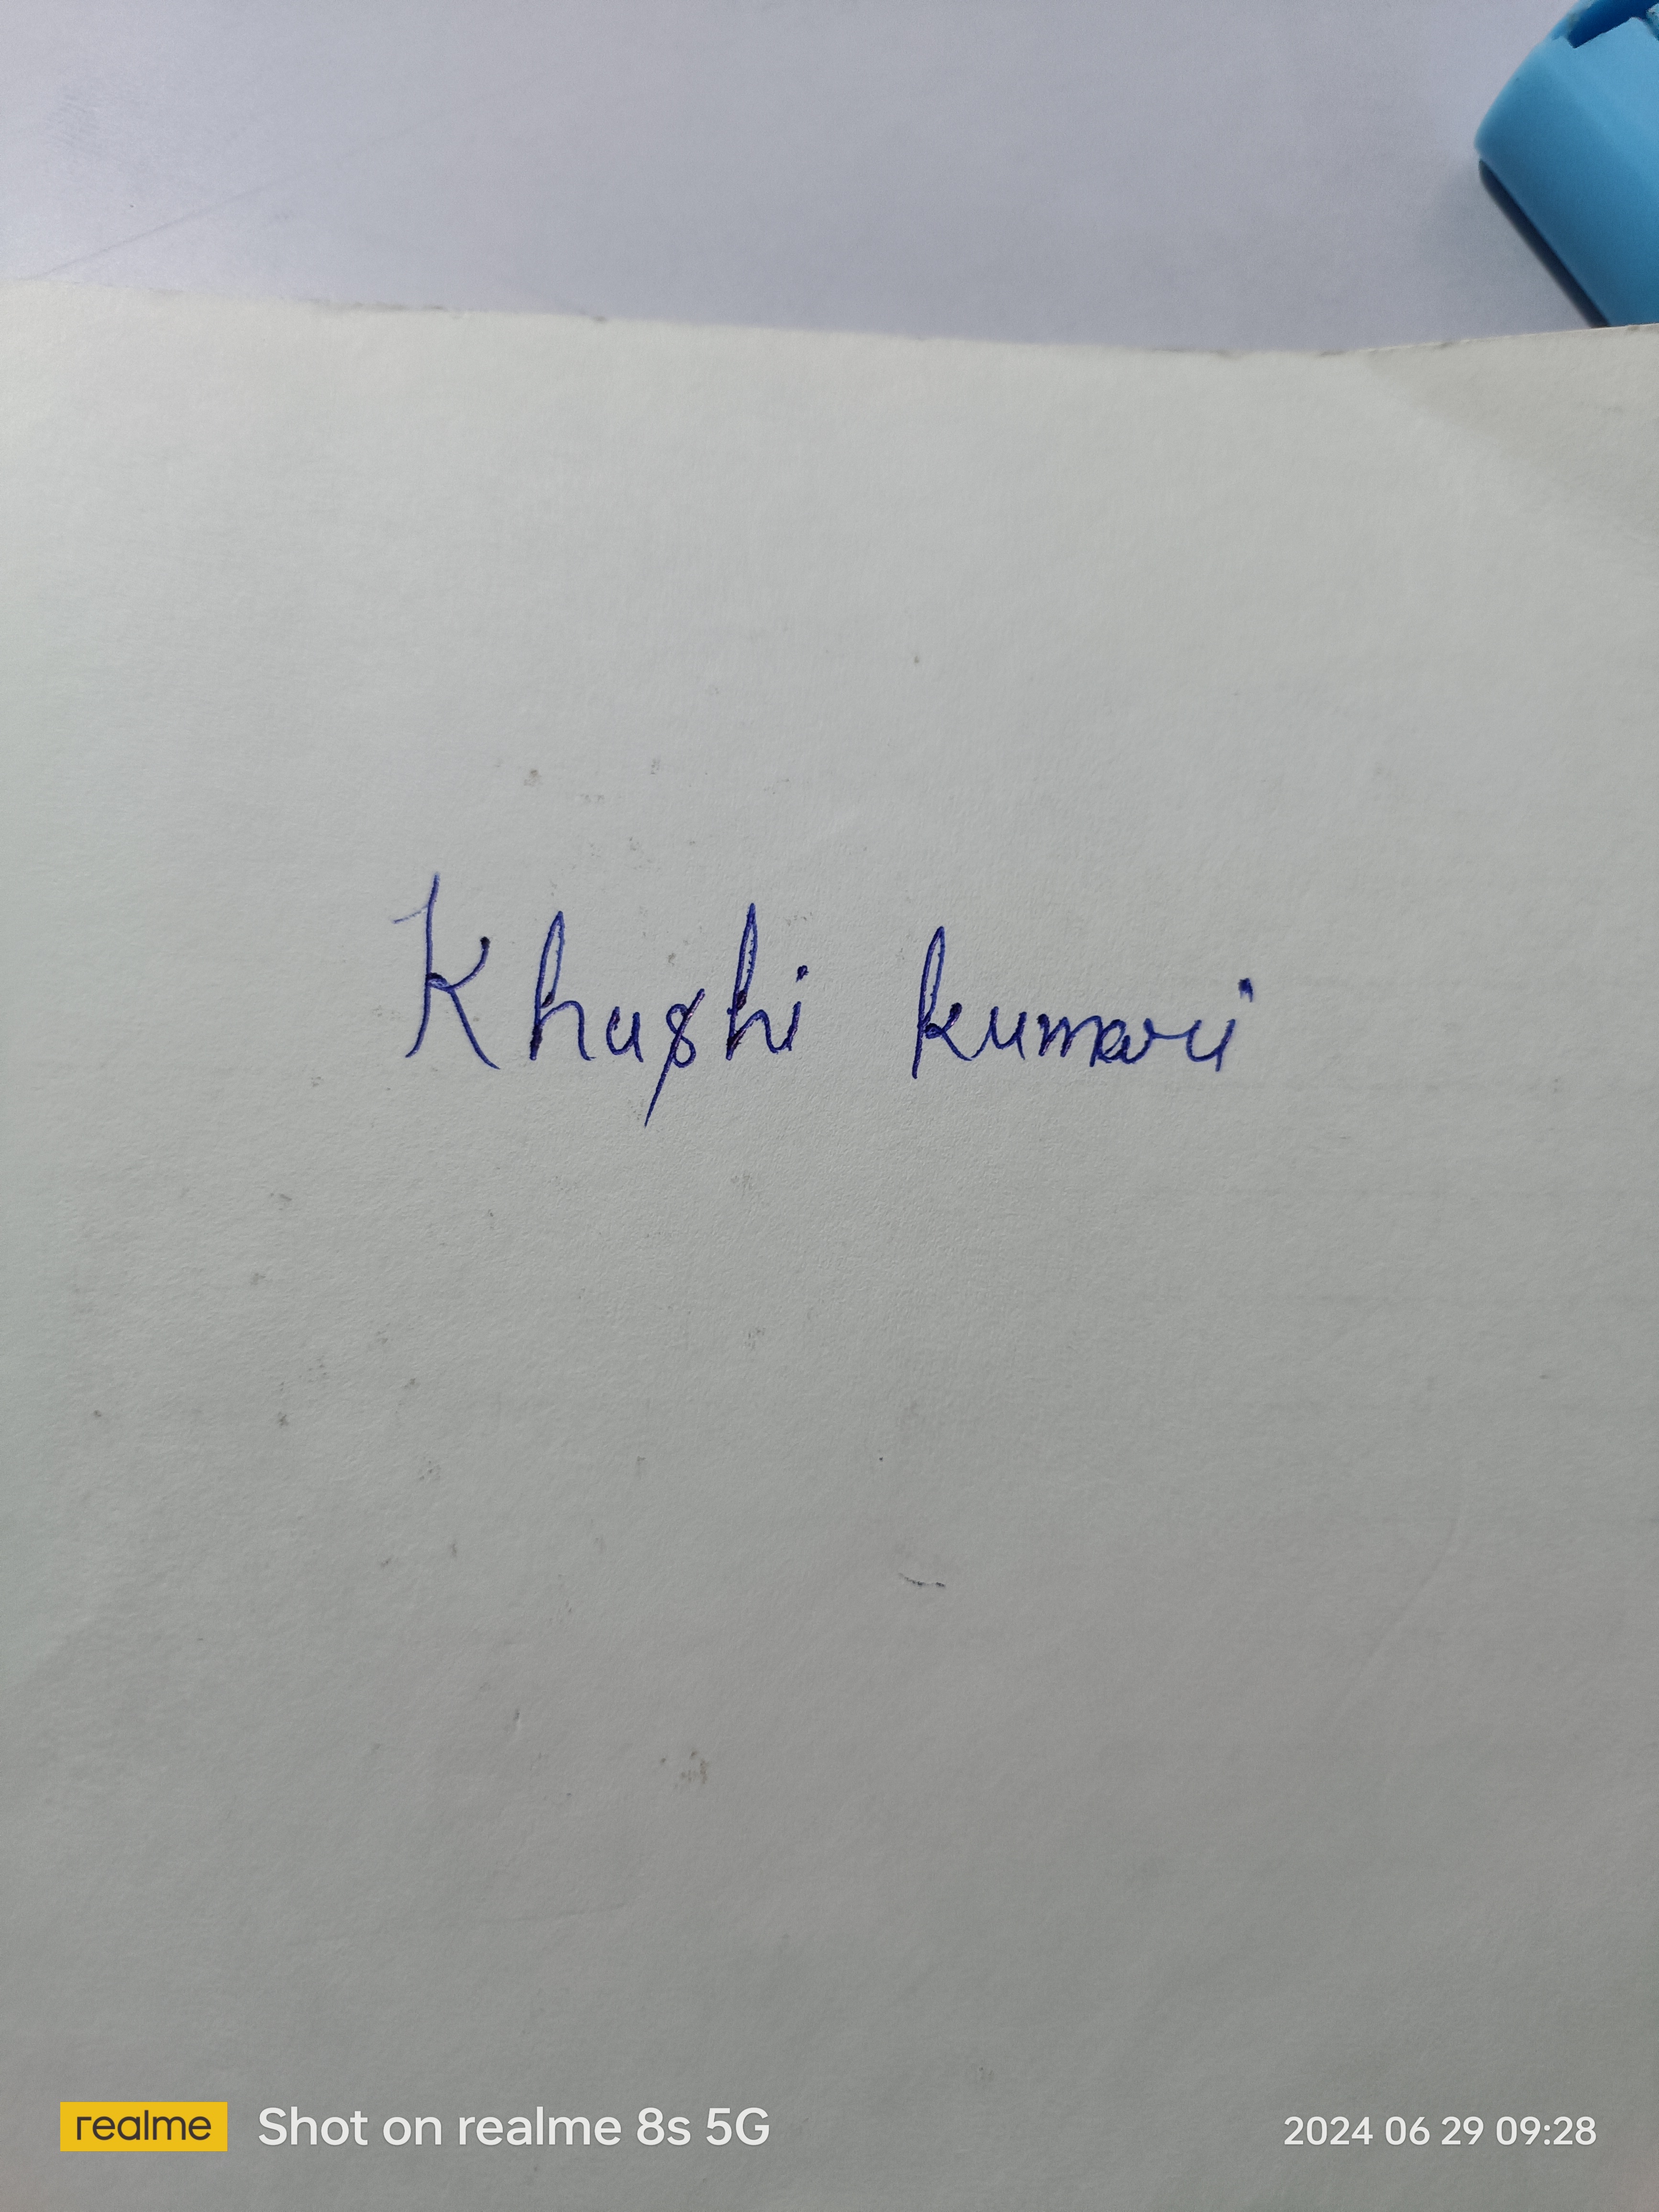 Khushi kumari
realme Shot on realme 8s 5G 2024 06 29 09:28